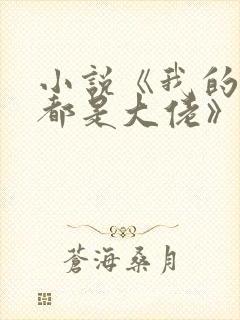 小説《我的
都是大佬》
蒼海桑月